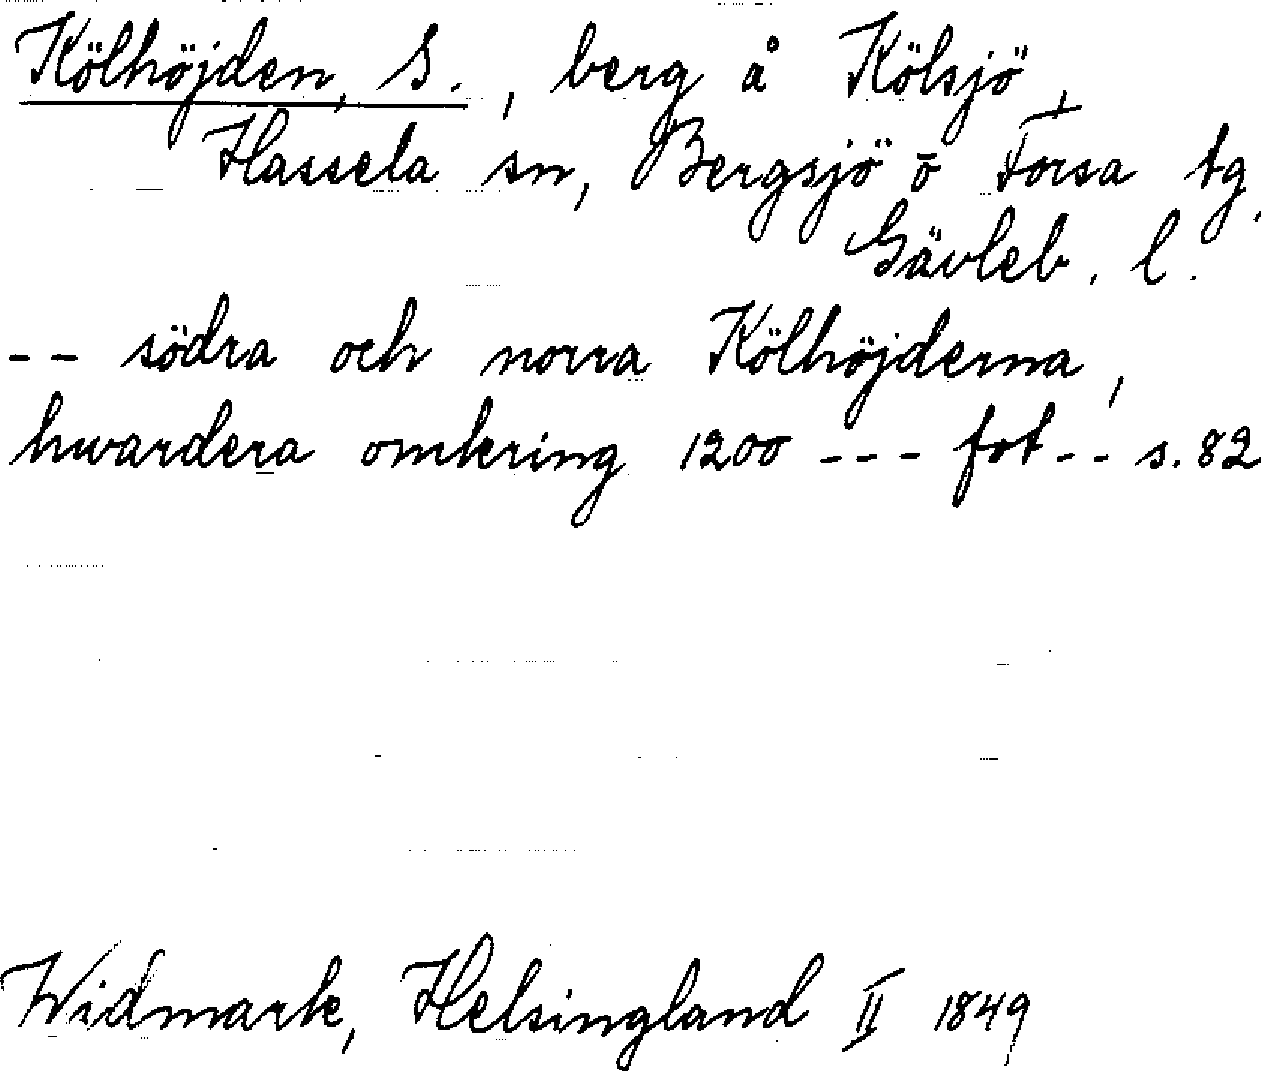 Kölhöjden, S., berg å Kölsjö,
Hassela sn, Bergsjö o Forsa tg,
Gävleb. l.
-- södra och norra Kölhöjderna,
hwardera omkring 1200 --- fot -- s. 82
Widmark, Helsingland II 1849